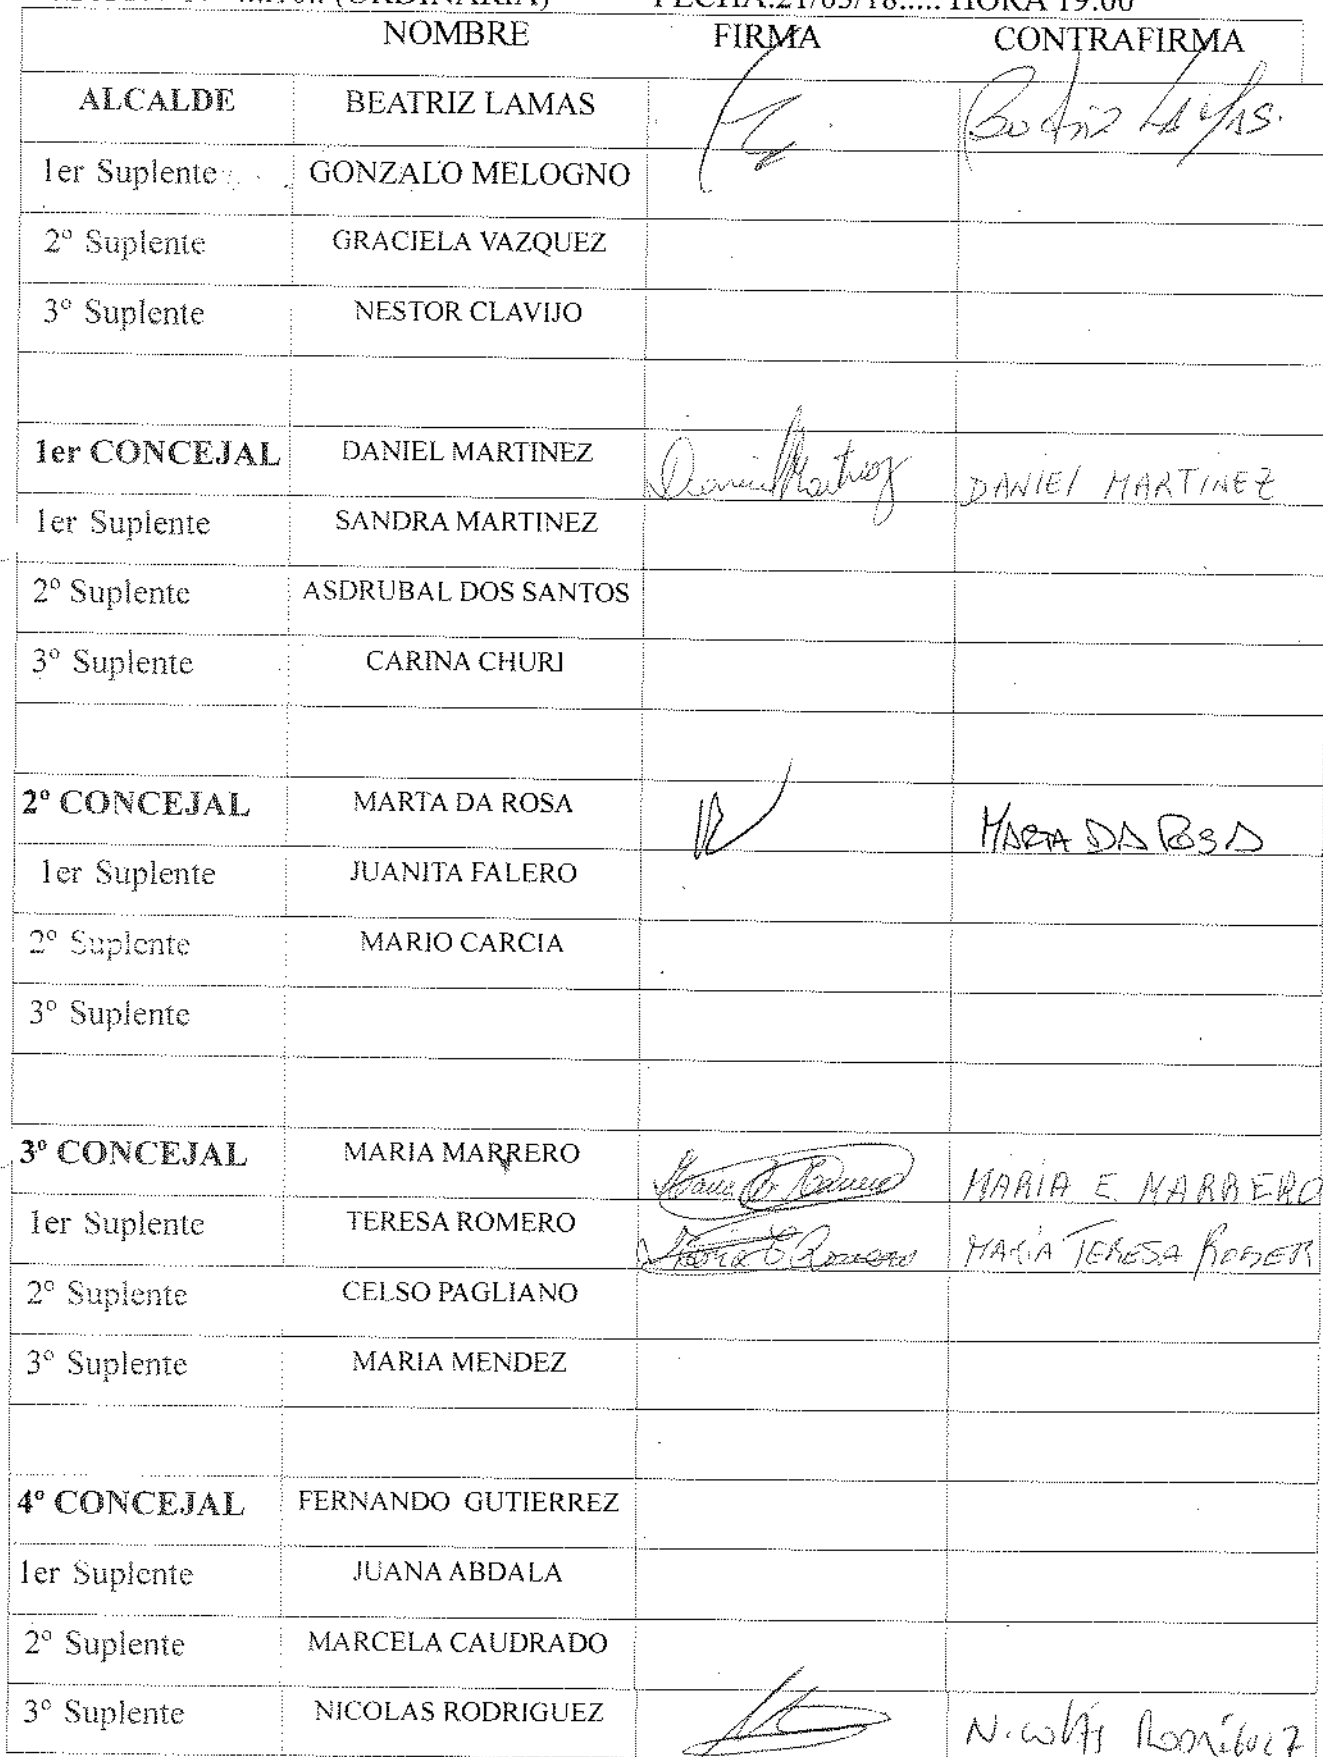 (ORDINARIA) FECHA:21/03/18..... HORA 19:00
NOMBRE FIRMA CONTRAFIRMA
ALCALDE BEATRIZ LAMAS Beatriz LAMAS.
1er Suplente GONZALO MELOGNO
2º Suplente GRACIELA VAZQUEZ
3º Suplente NESTOR CLAVIJO
1er CONCEJAL DANIEL MARTINEZ Daniel Martinez DANIEl MARTINEZ
1er Suplente SANDRA MARTINEZ
2º Suplente ASDRUBAL DOS SANTOS
3º Suplente CARINA CHURI
2º CONCEJAL MARTA DA ROSA MARTA DA ROSA
1er Suplente JUANITA FALERO
2º Suplente MARIO CARCIA
3º Suplente
3º CONCEJAL MARIA MARRERO Maria E. Marrero MARIA E. MARRERO
1er Suplente TERESA ROMERO Maria T Romero MARÍA TERESA ROMER
2º Suplente CELSO PAGLIANO
3º Suplente MARIA MENDEZ
4º CONCEJAL FERNANDO GUTIERREZ
1er Suplente JUANA ABDALA
2º Suplente MARCELA CAUDRADO
3º Suplente NICOLAS RODRIGUEZ Nicolás Rodríguez